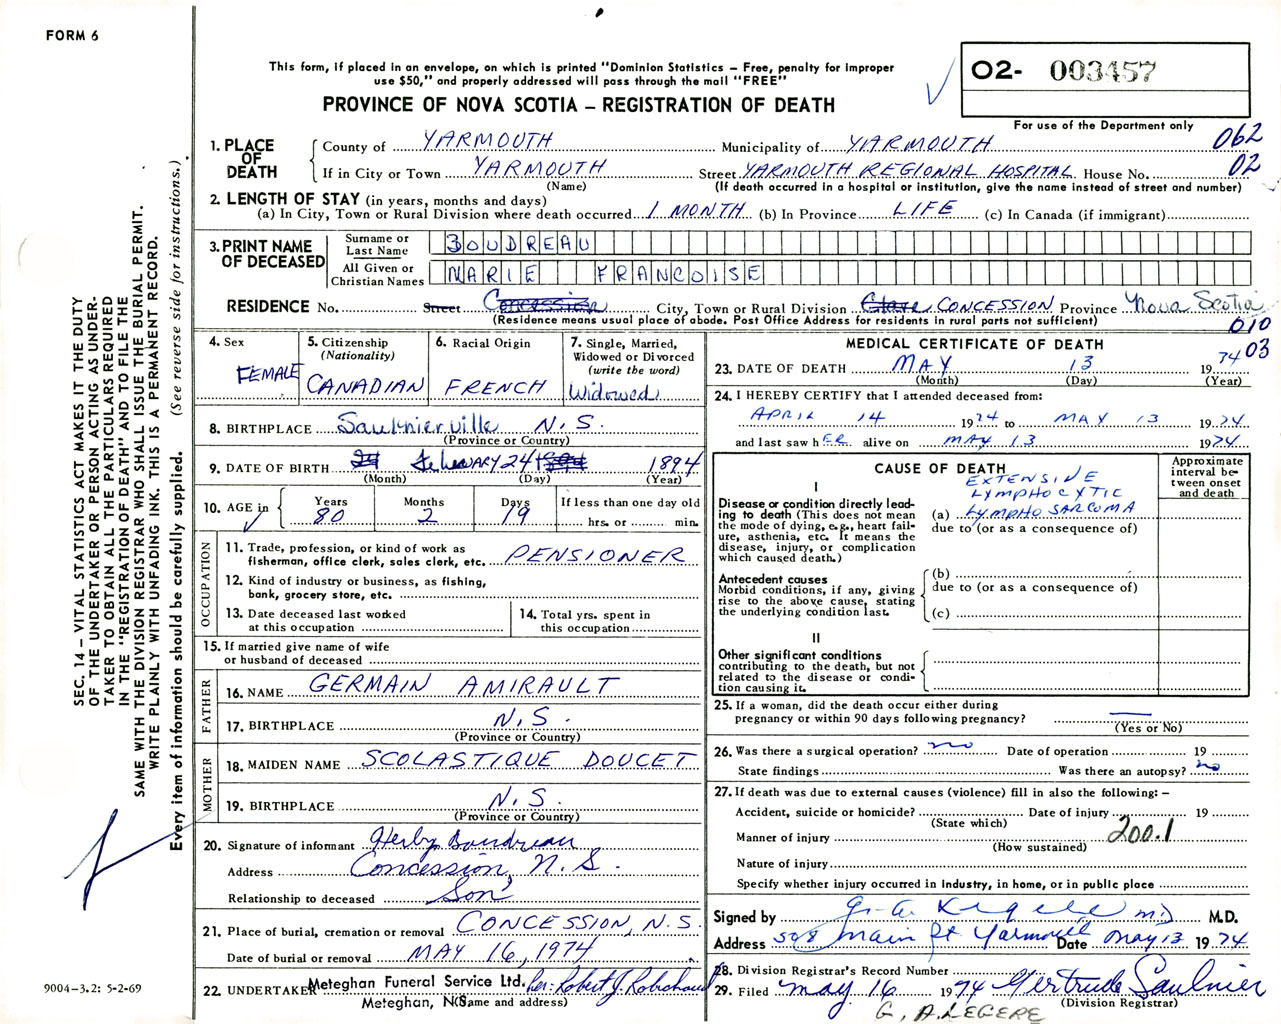 FORM 6
This form, if placed in an envelope, on which is printed "Dominion Statistics – Free, penalty for improper
use $50," and properly addressed will pass through the mail "FREE"
PROVINCE OF NOVA SCOTIA – REGISTRATION OF DEATH
O2- 003457
For use of the Department only
062
02
1. PLACE OF DEATH
County of YARMOUTH Municipality of YARMOUTH
If in City or Town YARMOUTH Street YARMOUTH REGIONAL HOSPITAL House No.
(Name) (If death occurred in a hospital or institution, give the name instead of street and number)
2. LENGTH OF STAY (in years, months and days)
(a) In City, Town or Rural Division where death occurred 1 MONTH (b) In Province LIFE (c) In Canada (if immigrant)
3. PRINT NAME OF DECEASED
Surname or Last Name BOUDREAU
All Given or Christian Names MARIE FRANCOISE
RESIDENCE No. Street Concession City, Town or Rural Division Clare CONCESSION Province Nova Scotia
(Residence means usual place of abode. Post Office Address for residents in rural parts not sufficient)
010
03
4. Sex FEMALE
5. Citizenship (Nationality) CANADIAN
6. Racial Origin FRENCH
7. Single, Married, Widowed or Divorced (write the word) Widowed
8. BIRTHPLACE Saulnierville N.S.
(Province or Country)
9. DATE OF BIRTH 24 February 24 1894 1894
(Month) (Day) (Year)
10. AGE in Years 80 Months 2 Days 19 If less than one day old hrs. or min.
OCCUPATION
11. Trade, profession, or kind of work as
fisherman, office clerk, sales clerk, etc. PENSIONER
12. Kind of industry or business, as fishing,
bank, grocery store, etc.
13. Date deceased last worked
at this occupation
14. Total yrs. spent in
this occupation
15. If married give name of wife
or husband of deceased
FATHER
16. NAME GERMAIN AMIRAULT
17. BIRTHPLACE N.S.
(Province or Country)
MOTHER
18. MAIDEN NAME SCOLASTIQUE DOUCET
19. BIRTHPLACE N.S.
(Province or Country)
20. Signature of informant Herby Boudreau
Address Concession, N.S.
Relationship to deceased Son
21. Place of burial, cremation or removal CONCESSION, N.S.
Date of burial or removal MAY 16, 1974
22. UNDERTAKER Meteghan Funeral Service Ltd. Per: Robert J. Robichaud
Meteghan, N.S. (Name and address)
MEDICAL CERTIFICATE OF DEATH
23. DATE OF DEATH MAY 13 1974
(Month) (Day) (Year)
24. I HEREBY CERTIFY that I attended deceased from:
APRIL 14 1974 to MAY 13 1974
and last saw hER alive on MAY 13 1974
CAUSE OF DEATH
Approximate interval between onset and death
I
Disease or condition directly leading to death (This does not mean the mode of dying, e.g., heart failure, asthenia, etc. It means the disease, injury, or complication which caused death.)
EXTENSIVE
LYMPHOCYTIC
(a) LYMPHO SARCOMA
due to (or as a consequence of)
Antecedent causes
Morbid conditions, if any, giving rise to the above cause, stating the underlying condition last.
(b)
due to (or as a consequence of)
(c)
II
Other significant conditions
contributing to the death, but not related to the disease or condition causing it.
25. If a woman, did the death occur either during
pregnancy or within 90 days following pregnancy? —
(Yes or No)
26. Was there a surgical operation? no Date of operation 19
State findings Was there an autopsy? no
27. If death was due to external causes (violence) fill in also the following: –
Accident, suicide or homicide? Date of injury 19
(State which)
Manner of injury 200.1
(How sustained)
Nature of injury
Specify whether injury occurred in industry, in home, or in public place
Signed by M.D. M.D.
Address 508 Main St Yarmouth Date May 13 1974
28. Division Registrar's Record Number
29. Filed May 16 1974 Gertrude Saulnier
(Division Registrar)
G. A. LEGERE
SEC. 14 – VITAL STATISTICS ACT MAKES IT THE DUTY
OF THE UNDERTAKER OR PERSON ACTING AS UNDER-
TAKER TO OBTAIN ALL THE PARTICULARS REQUIRED
IN THE "REGISTRATION OF DEATH" AND TO FILE THE
SAME WITH THE DIVISION REGISTRAR WHO SHALL ISSUE THE BURIAL PERMIT.
WRITE PLAINLY WITH UNFADING INK. THIS IS A PERMANENT RECORD.
Every item of information should be carefully supplied. (See reverse side for instructions.)
9004-3.2: 5-2-69